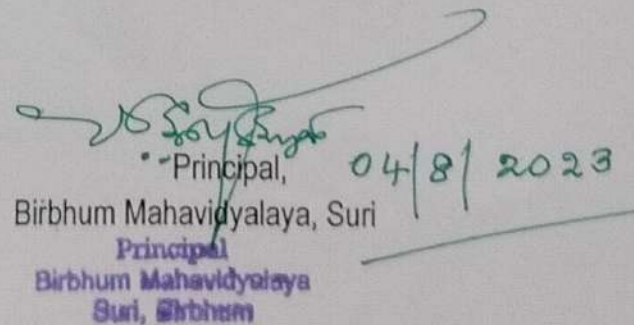 Principal, 04/8/2023
Birbhum Mahavidyalaya, Suri
Principal
Birbhum Mahavidyalaya
Suri, Birbhum